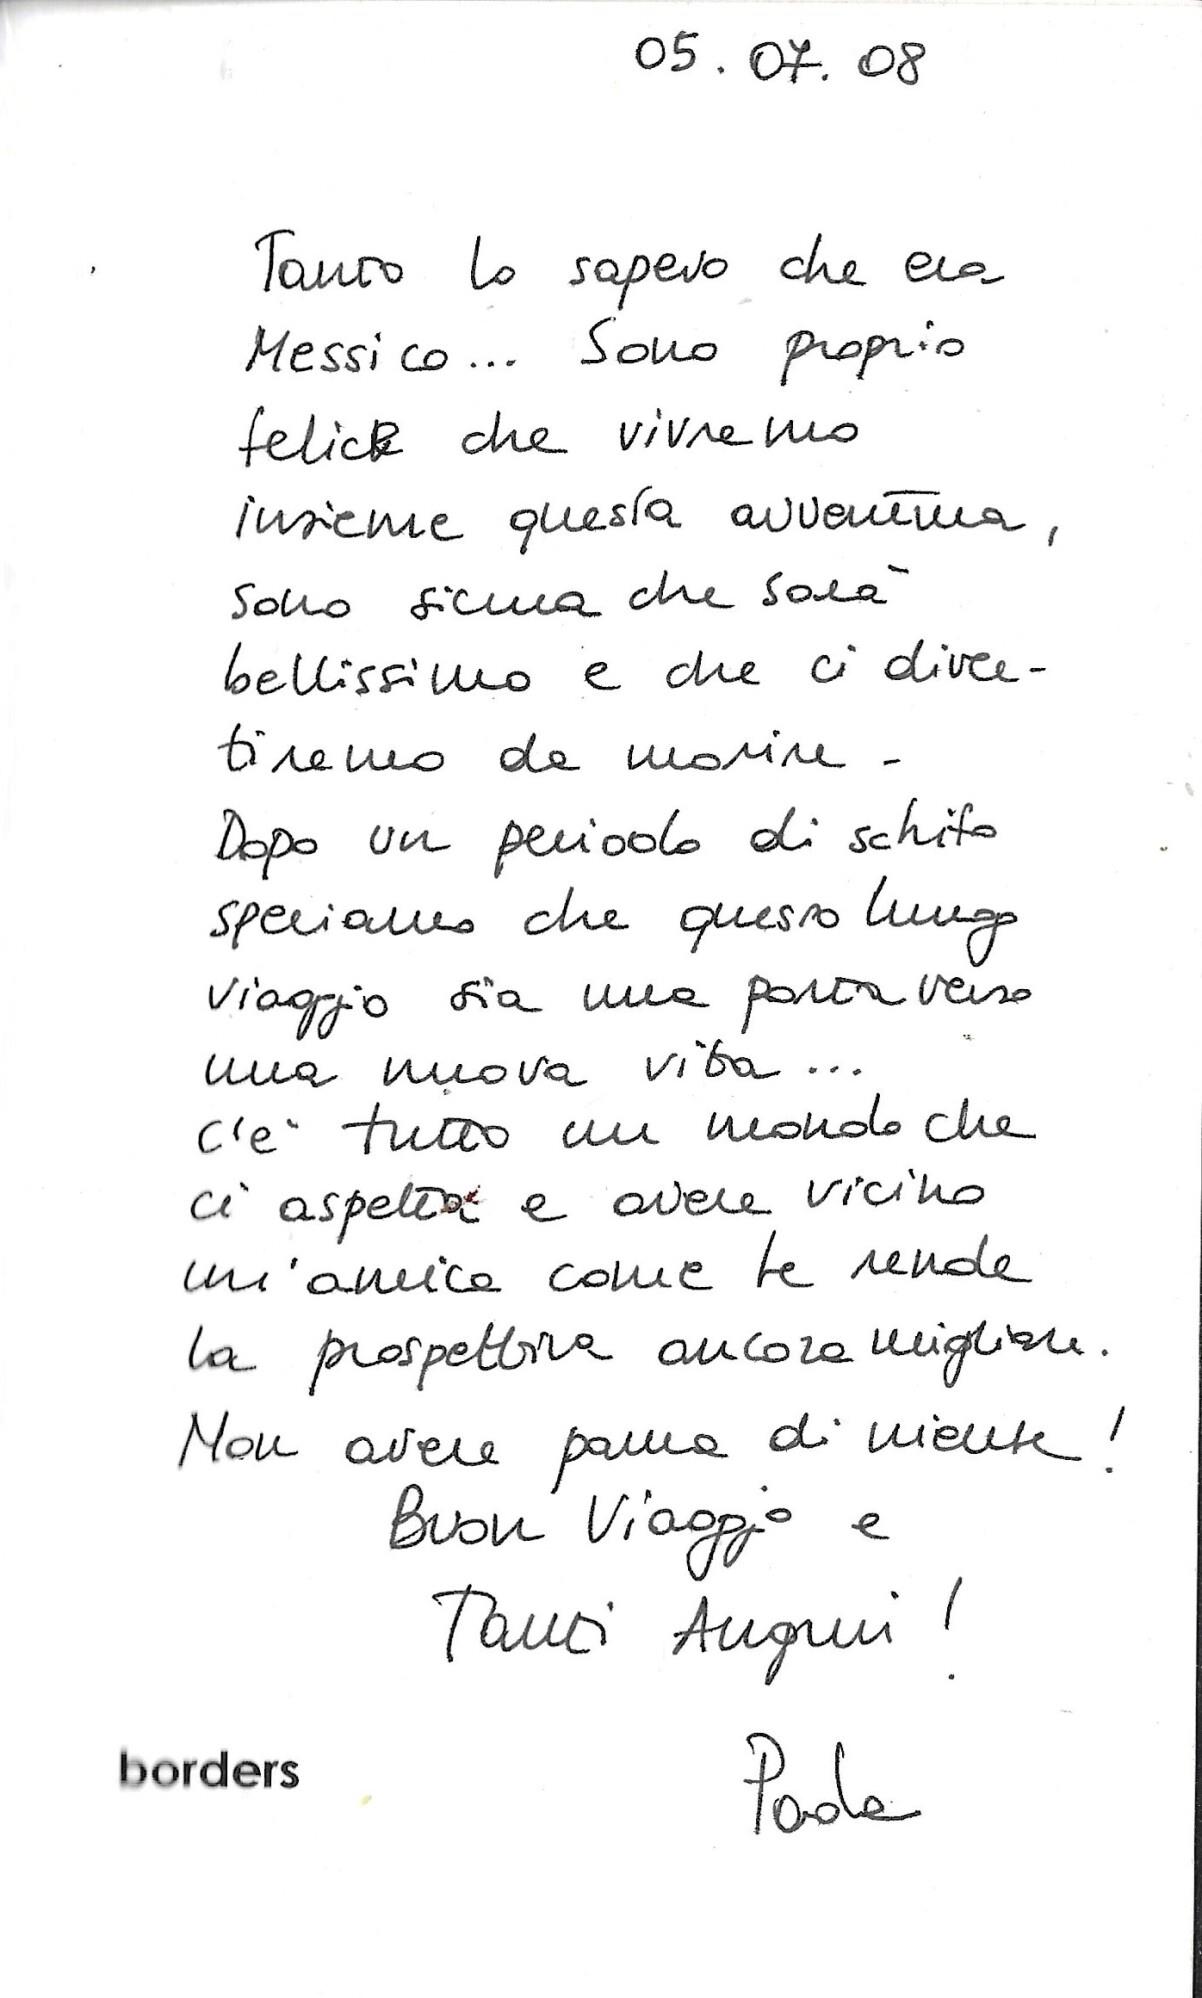 05.07.08
Tanto lo sapevo che era
Messico... Sono proprio
felice che vivremo
insieme questa avventura,
sono sicura che sarà
bellissimo e che ci diver-
tiremo da morire -
Dopo un periodo di schifo
speriamo che questo lungo
viaggio sia una porta verso
una nuova vita...
c'è tutto un mondo che
ci aspetta e avere vicino
un'amica come te rende
la prospettiva ancora migliore.
Non avere paura di niente!
Buon Viaggio e
Tanti Auguri!
Paola
borders